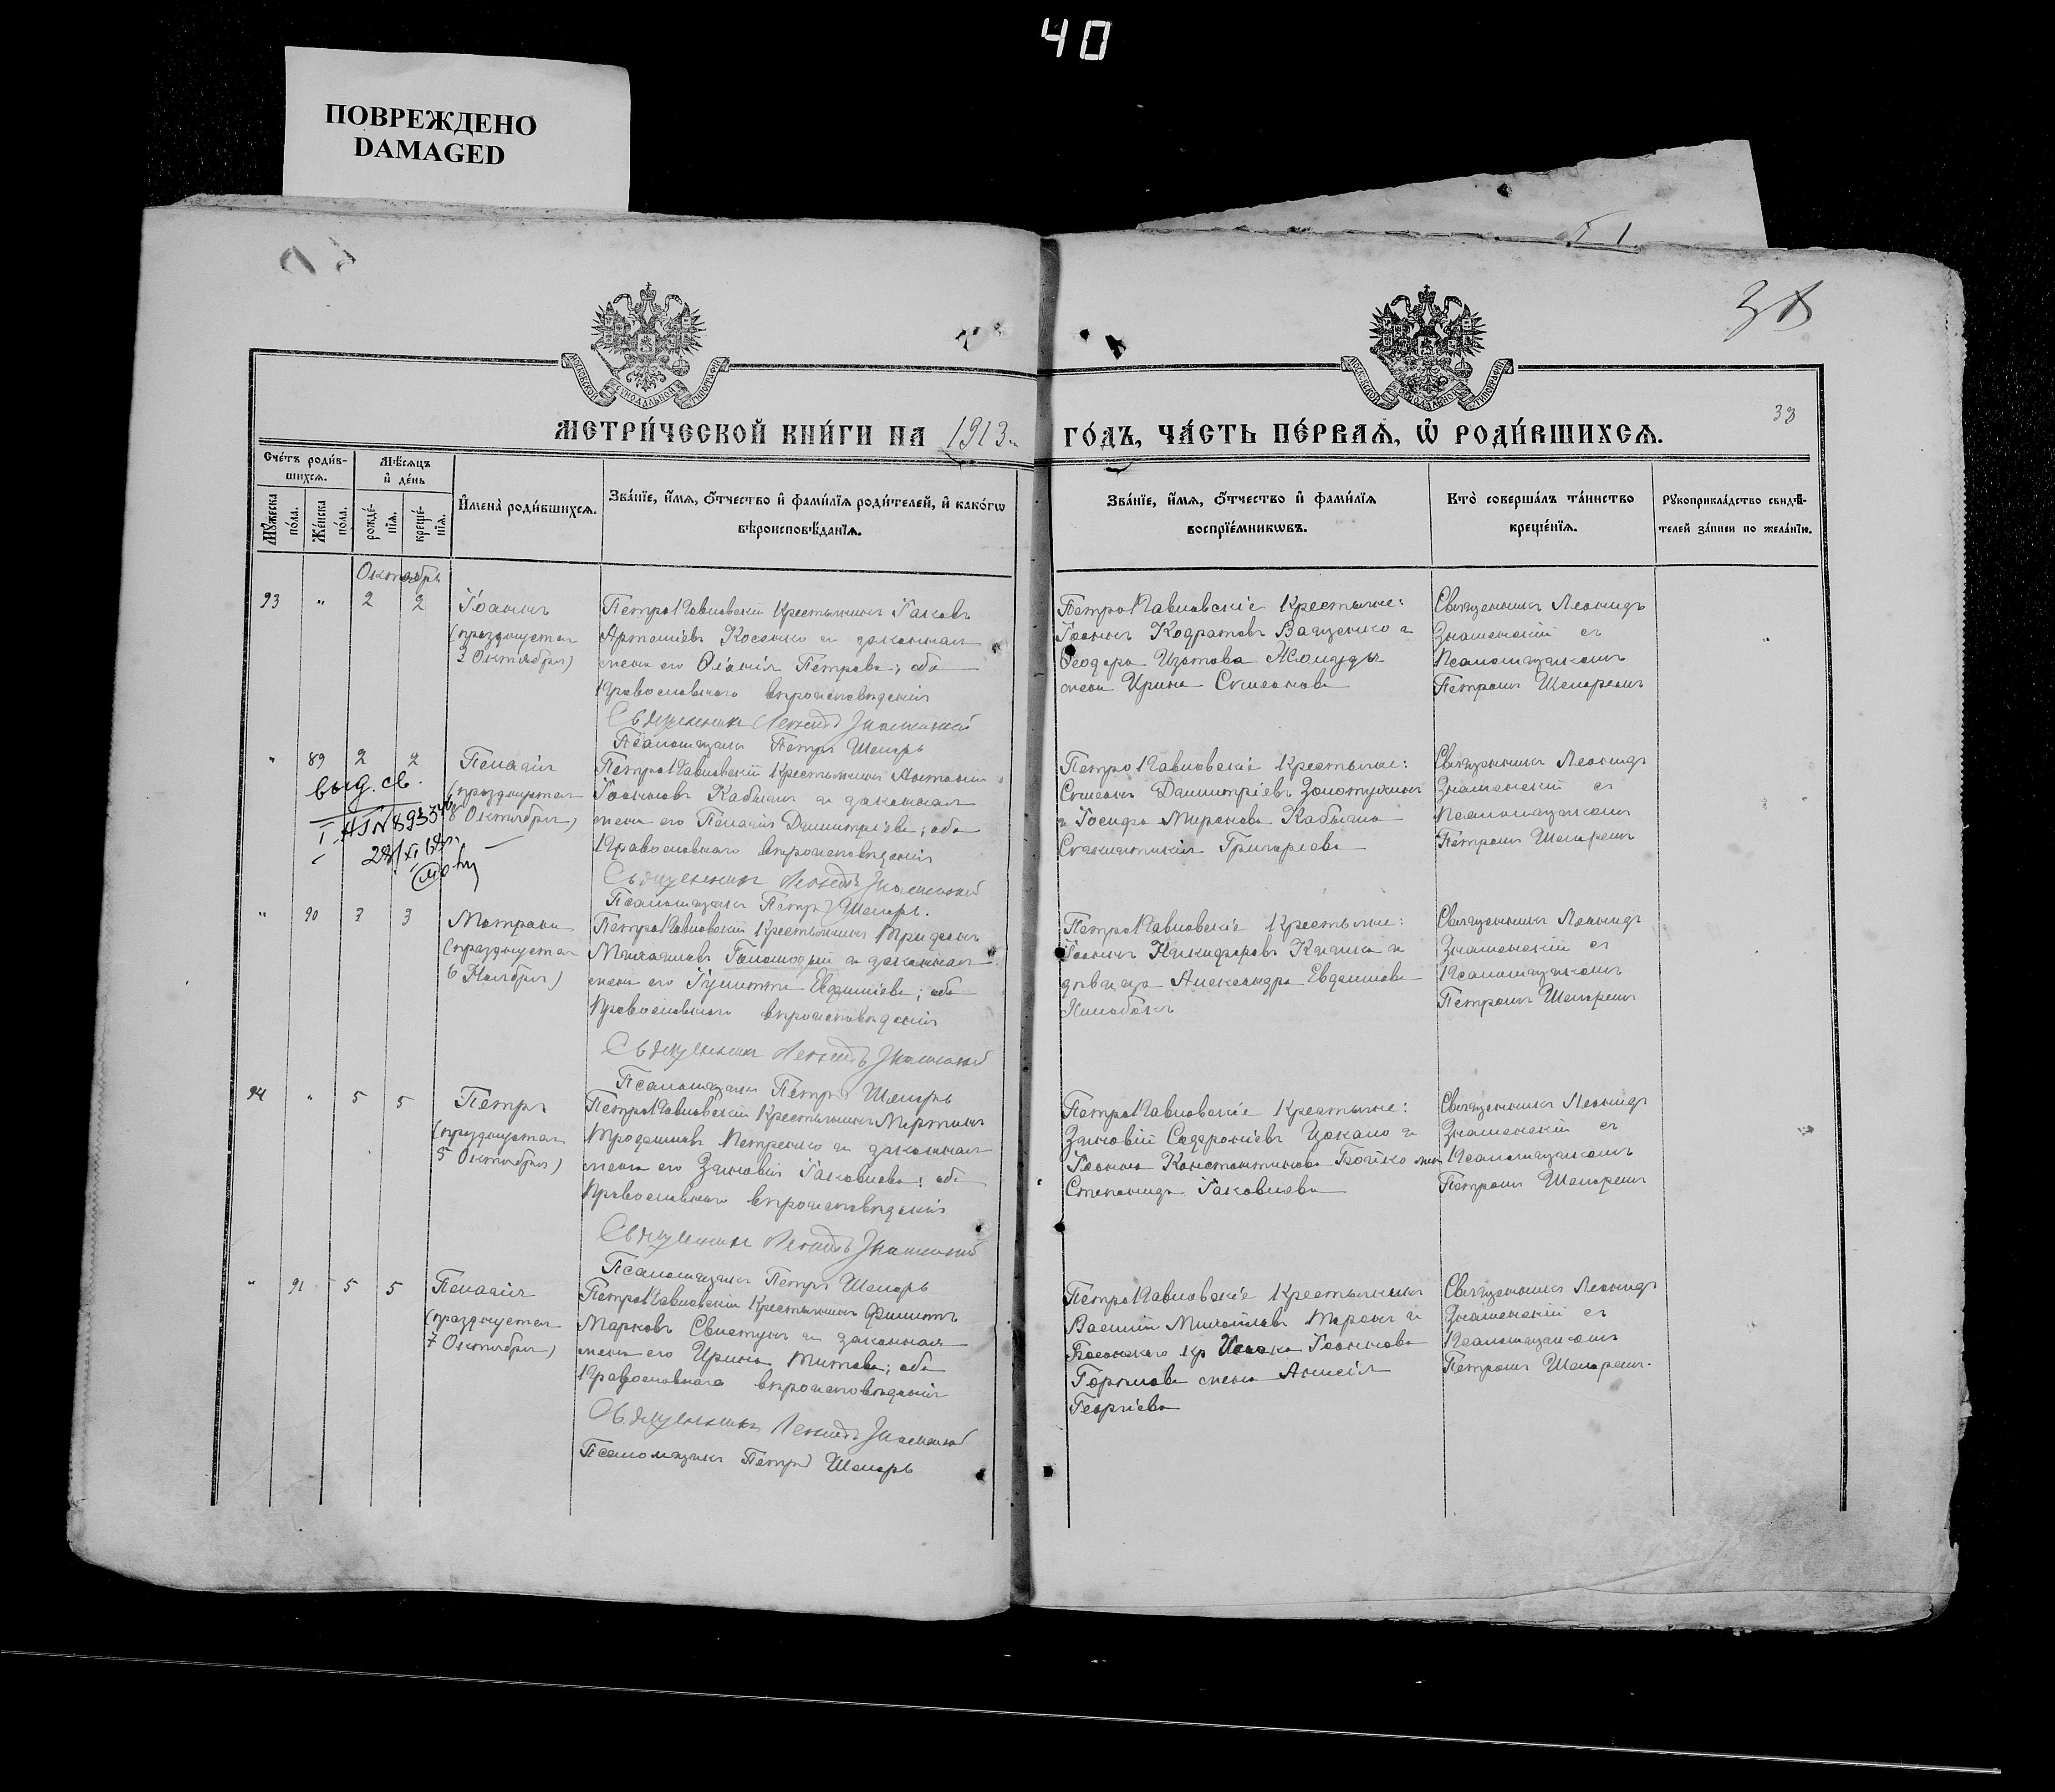 40
ПОВРЕЖДЕНО
DAMAGED
МЕТРИ́ЧЕСКОЙ КНИ́ГИ НА 1913
ГО́ДЪ, ЧА́СТЬ ПЕ́РВАѦ, Ѡ҆ РОДИ́ВШИХСѦ.
33
Сче́тъ роди́в-
шихсѧ.
Мѣ́сѧцъ
и҆ де́нь
Мꙋ́жеска по́ла.
Же́нска по́ла.
рожде́-
нїѧ.
креще́-
нїѧ.
И҆мена̀ роди́вшихсѧ.
Зва́нїе, и҆́мѧ, ѻ҆́тчество и҆ фами́лїѧ роди́телей, и҆ како́гѡ
вѣроисповѣ́данїѧ.
Зва́нїе, и҆́мѧ, ѻ҆́тчество и҆ фами́лїѧ
воспрїе́мникѡвъ.
Кто̀ соверша́лъ та́инство
креще́нїѧ.
Рꙋкоприкла́дство свидѣ́-
телей за́писи по жела́нїю.
Октябрь
93 " 2 2
Іоаннъ
(празднуется
2 Октября)
Петро Павловскій Крестьянинъ Іаковъ
Артеміевъ Косенко и законная
жена его Петрова; оба
Православнаго вѣроисповѣданія
Священникъ Леонидъ Знаменскій
Псаломщикъ Петръ Шепарь
Петро Павловскіе Крестьяне:
Іоаннъ Кодратовъ Ващенко и
Ѳеодора Изотова
жена Ирина Симеонова
Священникъ Леонидъ
Знаменскій съ
Псаломщикомъ
Петромъ Шепаремъ
" 89 2 2
выд. св.
Пелагія
(празднуется
8 Октября)
Петро Павловскій Крестьянинъ Антоній
Іоанновъ Кабыш и законная
жена его Пелагія Димитріева; оба
Православнаго вѣроисповѣданія
Священникъ Леонидъ Знаменскій
Псаломщикъ Петръ Шепарь.
Петро Павловскіе Крестьяне:
Симеонъ Димитріевъ Золотухинъ
и Іосифа Миронова Кабыша
Григоріева
Священникъ Леонидъ
Знаменскій съ
Псаломщикомъ
Петромъ Шепаремъ
" 90 3 3
Матрона
(празднуется
6 Ноября)
Петро Павловскій Крестьянинъ Трифонъ
Михаиловъ и законная
жена его Евфиміева; оба
Православнаго вѣроисповѣданія
Священникъ Леонидъ Знаменскій
Псаломщикъ Петръ Шепарь
Петро Павловскіе Крестьяне:
Іоаннъ Никифоровъ и
дѣвица Александра Евфимова
Священникъ Леонидъ
Знаменскій съ
Псаломщикомъ
Петромъ Шепаремъ
94 " 5 5
Петръ
(празднуется
5 Октября)
Петро Павловскій Крестьянинъ Мартинъ
Трофимовъ Петренко и законная
жена его Зиновія Іаковлева; оба
Православнаго вѣроисповѣданія
Священникъ Леонидъ Знаменскій
Псаломщикъ Петръ Шепарь
Петро Павловскіе Крестьяне:
Зиновій Софроніевъ Цокало и
Іоанна Константинова Бойко жена
Степанида Іаковлева
Священникъ Леонидъ
Знаменскій съ
Псаломщикомъ
Петромъ Шепаремъ
" 91 5 5
Пелагія
(празднуется
7 Октября)
Петро Павловскій Крестьянинъ Филиппъ
Марковъ Свистунъ и законная
жена его Ирина Титова; оба
Православнаго вѣроисповѣданія
Священникъ Леонидъ Знаменскій
Псаломщикъ Петръ Шепарь
Петро Павловскіе Крестьянинъ
Василій Михайловъ Таранъ и
кр Исаака Іоаннова
жена Анисія
Георгіева
Священникъ Леонидъ
Знаменскій съ
Псаломщикомъ
Петромъ Шепаремъ.